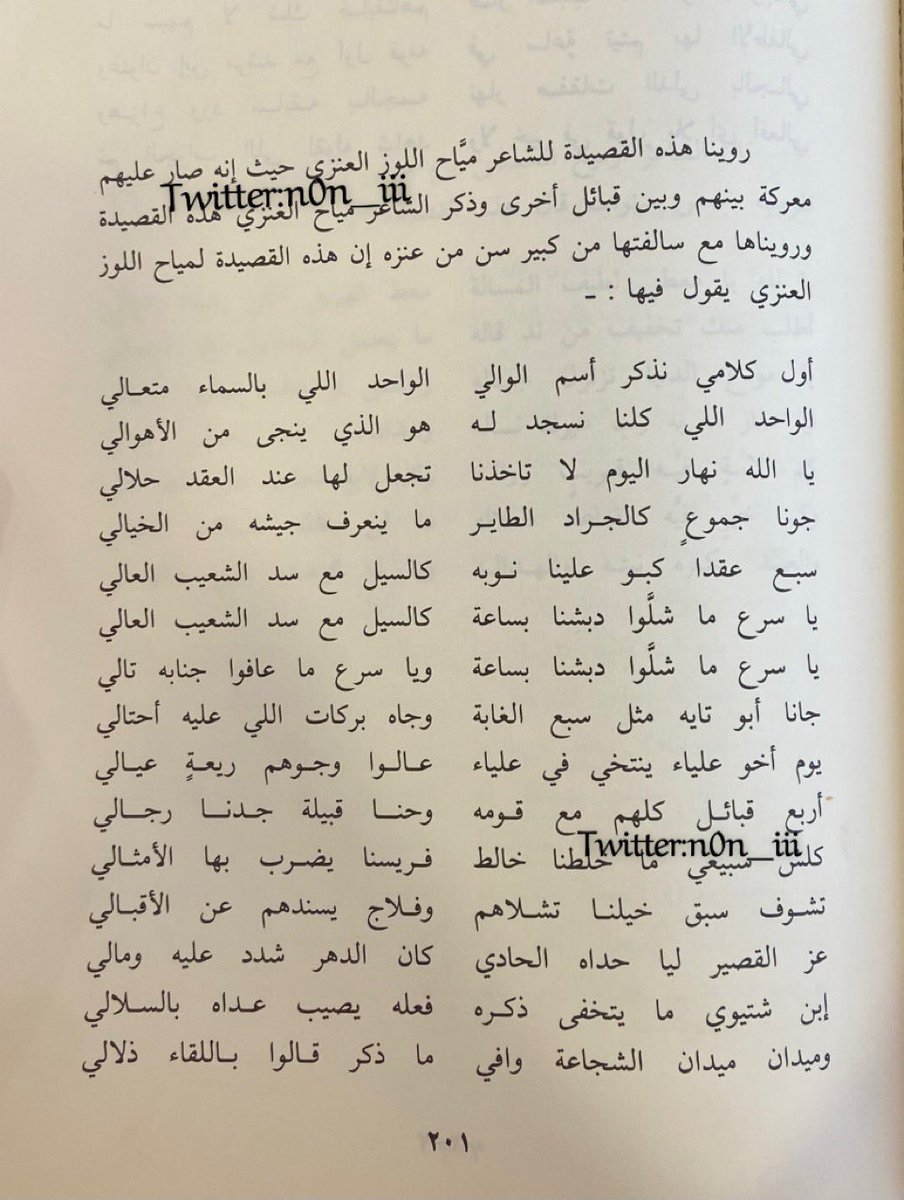 روينا هذه القصيدة للشاعر ميَّاح اللوز العنزي حيث إنه صار عليهم
Twitter:n0n__iii
معركة بينهم وبين قبائل أخرى وذكر الشاعر مياح العنزي هذه القصيدة
ورويناها مع سالفتها من كبير سن من عنزه إن هذه القصيدة لمياح اللوز
العنزي يقول فيها : ـ
أول كلامي نذكر أسم الوالي الواحد اللي بالسماء متعـالي
الواحد اللي كلنا نسجد لـه هو الذي ينجى من الأهوالي
يا الله نهار اليوم لا تاخذنا تجعل لها عند العقد حلالي
جونا جموعٍ كالجـراد الطايـر ما ينعرف جيشه من الخيالي
سبـع عقدا كبـو علينا نـوبه كالسيل مع سد الشعيب العالي
يا سرع ما شلَّوا دبشنا بساعة كالسيل مع سد الشعيب العالي
يا سرع ما شلَّوا دبشنا بساعة ويا سرع ما عافوا جنابه تالي
جانا أبو تايه مثل سبع الغابة وجاه بركات اللي عليه أحتالي
يوم أخو علياء ينتخي في علياء عـالـوا وجـوهم ريعـةٍ عيـالي
أربع قبائـل كلهم مع قـومه وحنـا قبيلة جـدنـا رجـالي
Twitter:n0n__iii
كلش سبيعي ما خلطنا خالط فـريسنا يضـرب بها الأمثـالي
تشـوف سبق خيلنـا تشـلاهم وفـلاج يسندهم عن الأقبـالي
عز القصير ليا حداه الحادي كان الدهر شدد عليه ومالي
إبن شتيوي ما يتخفى ذكـره فعله يصيب عـداه بالسـلالي
وميدان ميدان الشجاعة وافي ما ذكر قـالوا بـاللقاء ذلالي
٢٠١